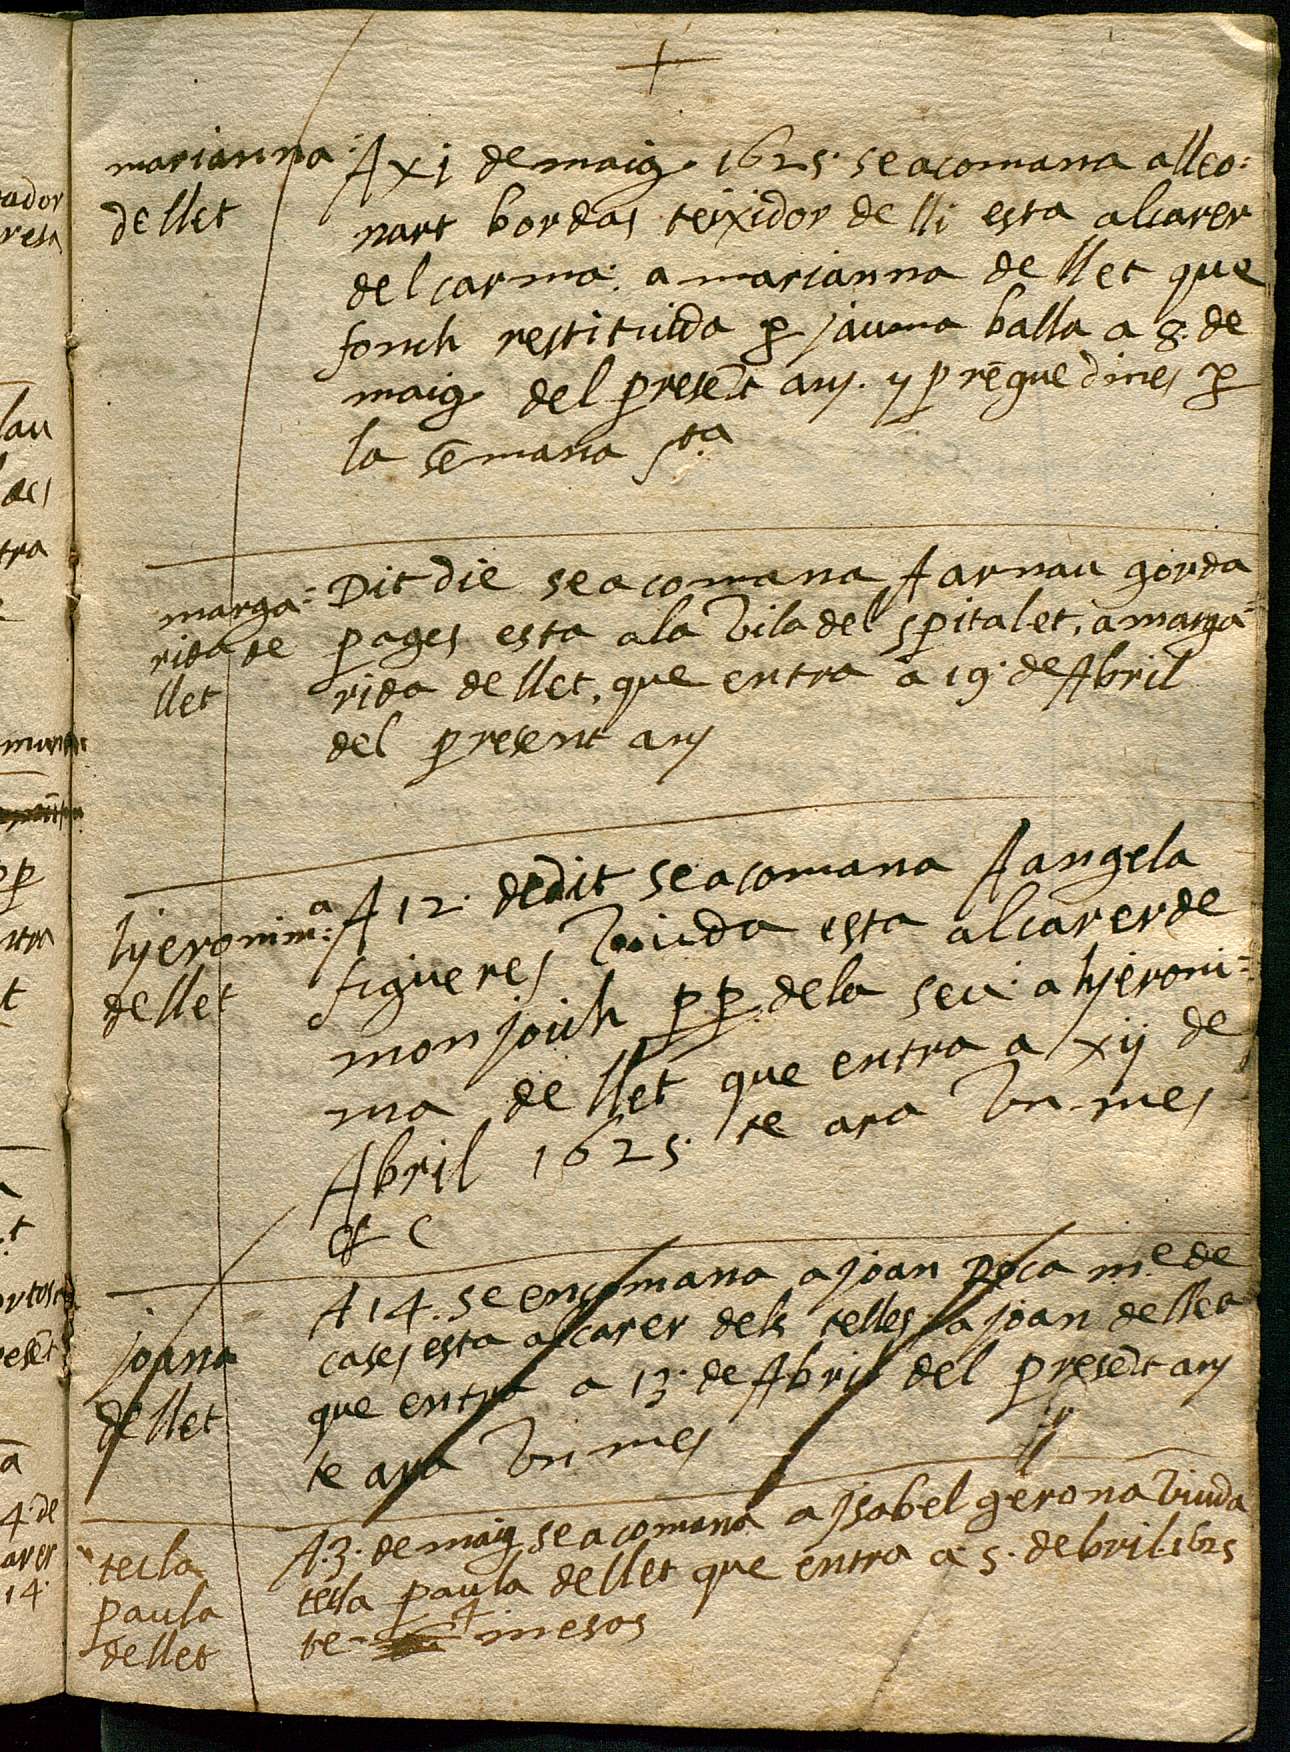 marianna
de llet
A xj de maig 1625 se acomana a lleo:
nart bordas teixidor de lli esta al carer
del carma: a marianna de llet que
fonch restituida p jauma balla a 8. de
maig del presēt any. y prēgue dines p
la sēmana sta
marga=
rida de
llet
Dit die se acomana A arnau gorda
pages esta a la vila del spitalet, a marga=
rida de llet, que entra a 19. de Abril
del present any
hjeronima
de llet
A 12. de dit se acomana A angela
figueres viuda esta al carer de
monjouh pp. de la seu a hjeroni=
ma de llet que entra a xij de
Abril 1625. te ara vn mes
& C
joana
de llet
A 14. se encomana a joan roca me de
cases esta al carer dels telles a joan de llet
que entra a 13. de Abril del presēt any
te ara vn mes
tecla
paula
de llet
A 3. de maig se acomana a jsabel gerona viuda
tecla paula de llet que entra a 5. de bril 1625
te 4 mesos